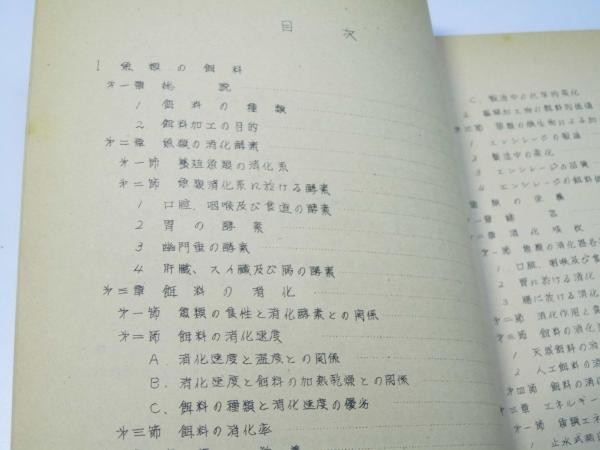 目 次
I 魚類の餌料
第一章 総 説
1 餌料の種類
2 餌料加工の目的
第二章 魚類の消化酵素
第一節 養殖魚類の消化系
第二節 魚類消化系に於ける酵素
1 口腔、咽喉及び食道の酵素
2 胃の酵素
3 幽門垂の酵素
4 肝臓、スイ臓及び腸の酵素
第三章 餌料の消化
第一節 魚類の食性と消化酵素との関係
第二節 餌料の消化速度
A. 消化速度と温度との関係
B. 消化速度と餌料の加熱乾燥との関係
C. 餌料の種類と消化速度の優劣
第三節 餌料の消化率
C. 製造中の化学的変化
第三節 藻類の微生物による加
1 エンシレージの製造
2 製造中の変化
3 エンシレージの品質
4 エンシレージの餌料価
類の栄養
第一章 緒 言
第二章 消化吸收
第一節 魚類の消化器各
1 口腔、咽喉及び食
2 胃に於ける消化
3 腸に於ける消化
第二節 消化作用と
第三節 餌料の消化
1 天然餌料の消
2 人工餌料の消
第四節 餌料の消
第三章 エネルギー
第一節 魚類エネ
1 止水式